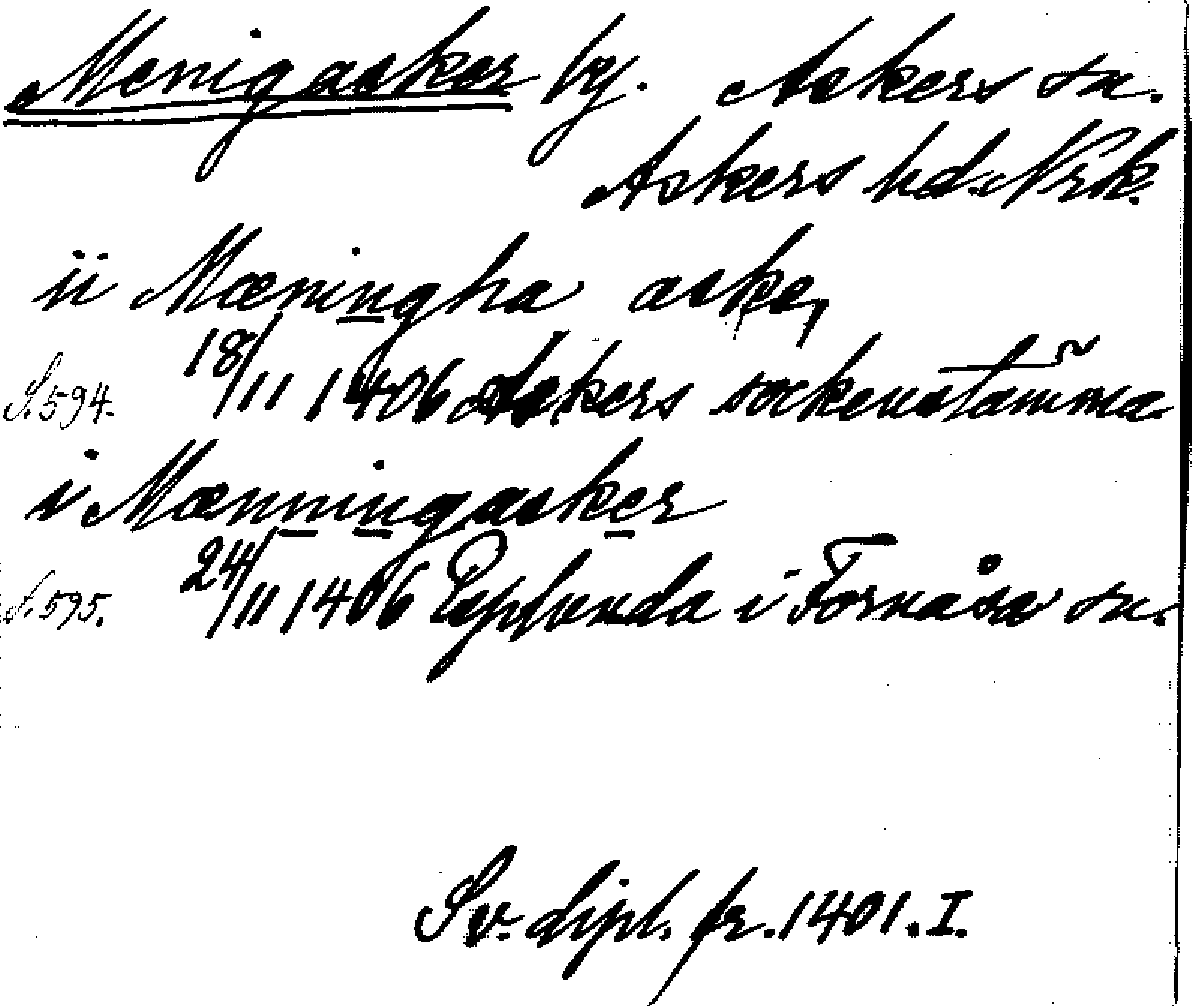 Menigasker by. Askers sn.
Askers hd. Nrk.
ii Mæningha aske,
S. 594. 18/11 1406 Askers sockenstämma
i Mænningasker
S. 595. 24/11 1406 Esplunda i Fornåsa sn.
Sv. dipl. fr. 1401. I.